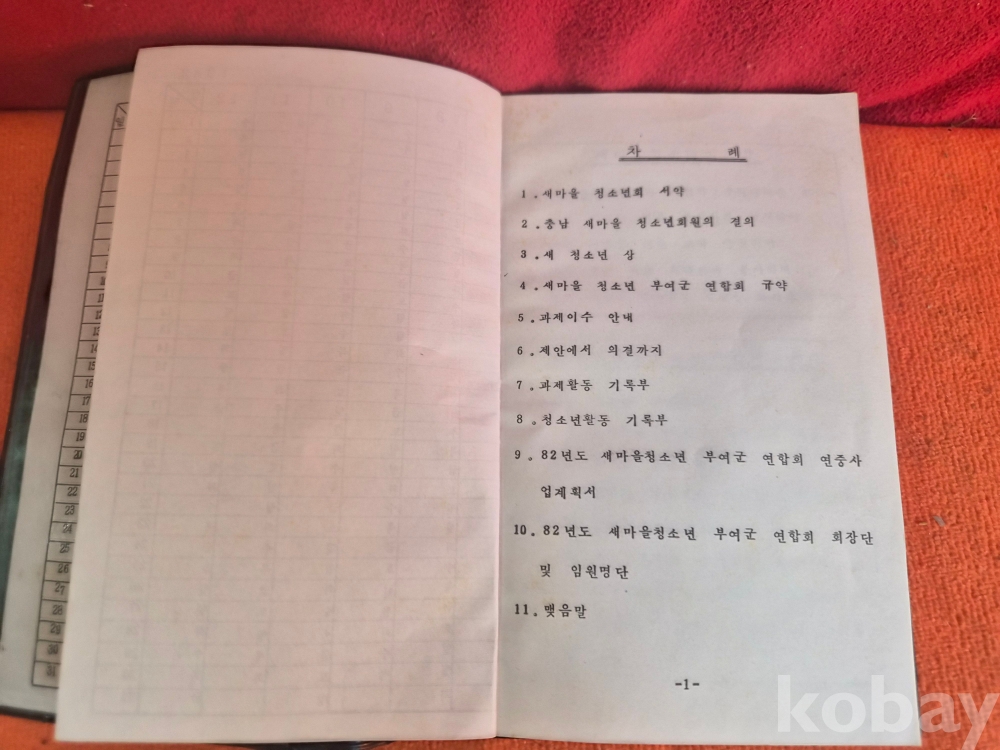 차 례
1. 새마을 청소년회 서약
2. 충남 새마을 청소년회원의 결의
3. 새 청소년 상
4. 새마을 청소년 부여군 연합회 규약
5. 과제이수 안내
6. 제안에서 의결까지
7. 과제활동 기록부
8. 청소년활동 기록부
9. 82년도 새마을청소년 부여군 연합회 연중사
업계획서
10. 82년도 새마을청소년 부여군 연합회 회장단
및 임원명단
11. 맺음말
-1-
10
11
12
13
14
15
16
17
18
19
20
21
22
23
24
25
26
27
28
29
30
31
kobay